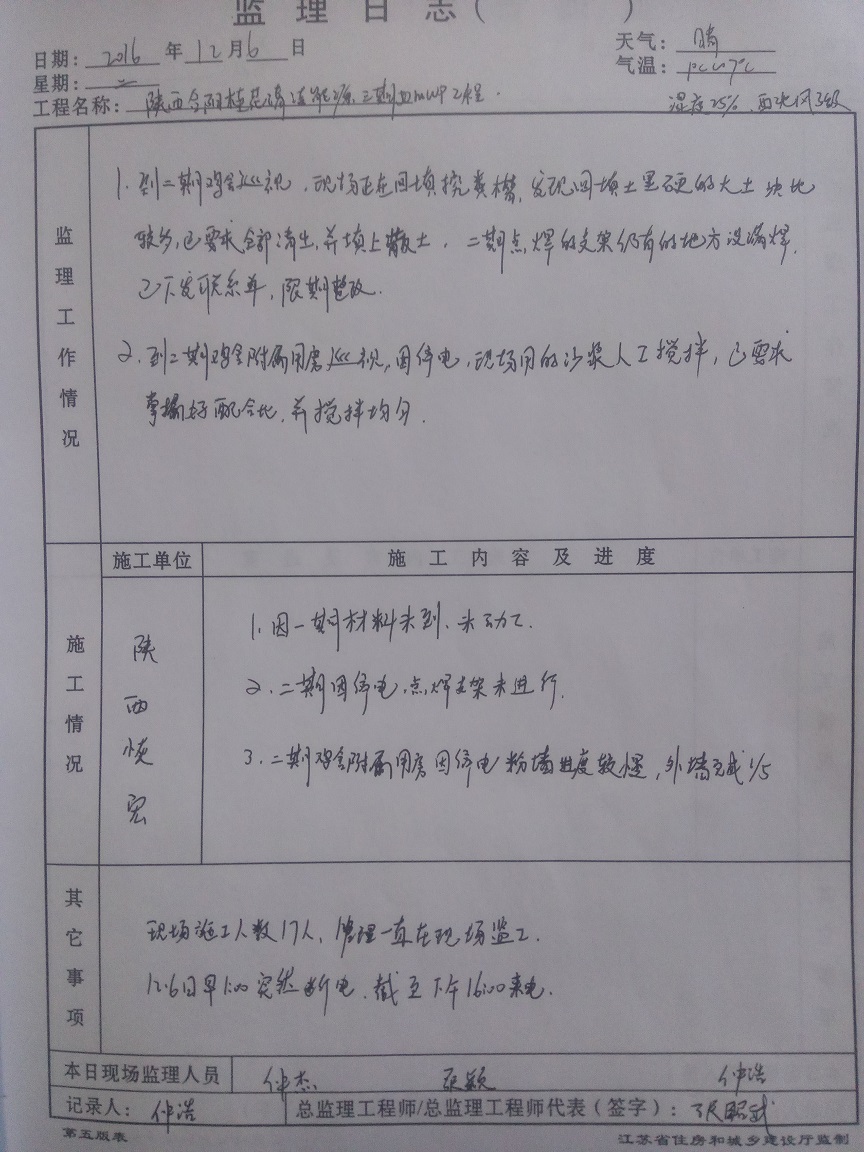 监 理 日 志 ( )
日期: 2016 年 12 月 6 日 天气: 晴
星期: 二 气温:
工程名称: 陕西合阳 三期 湿度25%. 西北风3级
监理工作情况
1. 到二期鸡舍巡视, 现场正在回填挖粪槽, 发现回填土里硬的大土块比
较多, 已要求全部清出, 并填上散土. 二期点焊的支架仍有的地方没满焊.
已下发联系单, 限期整改.
2. 到二期鸡舍附属用房巡视, 因停电, 现场用的沙浆人工搅拌, 已要求
掌握好配合比, 并搅拌均匀.
施工情况
施工单位 施 工 内 容 及 进 度
陕西 宏
1. 因一期材料未到. 未动工.
2. 二期因停电, 点焊支架未进行.
3. 二期鸡舍附属用房因停电粉墙进度较慢, 外墙完成1/5
其它事项
现场施工人数17人, 管理一直在现场监工.
12.6日早1:00突然断电. 截至下午16:00来电.
本日现场监理人员 仲杰 张颖 仲浩
记录人: 仲浩 总监理工程师/总监理工程师代表(签字): 张昭武
第五版表 江苏省住房和城乡建设厅监制